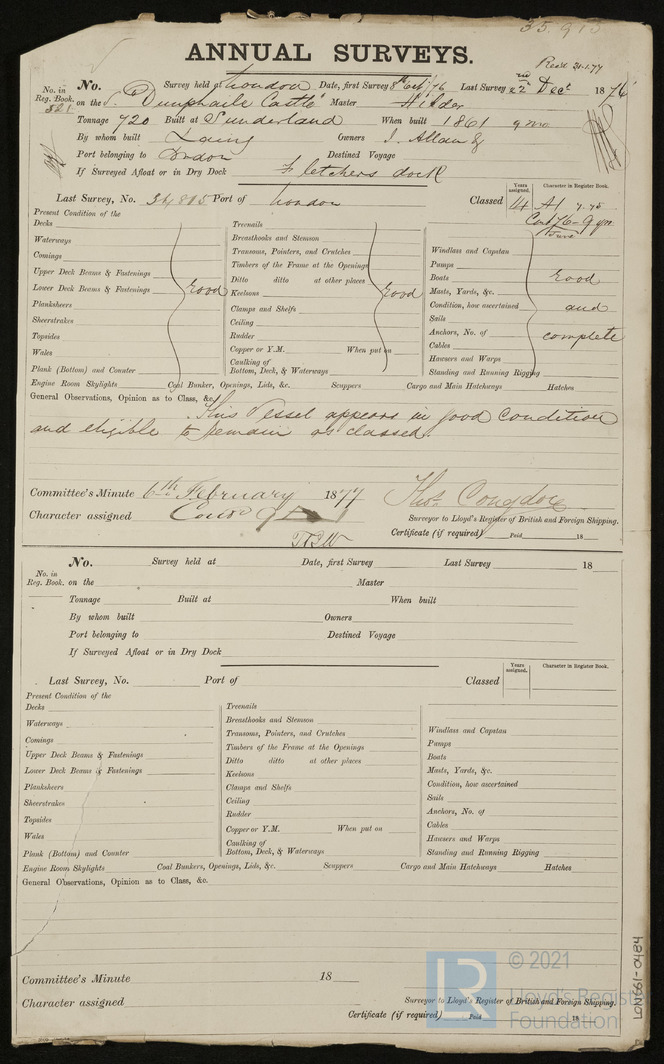 35,915
ANNUAL SURVEYS.
No. in Reg. Book. 821
No. Survey held at London Date, first Survey Last Survey 22nd Decr 1876
on the S. Dunphaile Castle Master
Tonnage 720 Built at Sunderland When built 1861 9 mo
By whom built Laing Owners J. Allan &
Port belonging to London Destined Voyage
If Surveyed Afloat or in Dry Dock Fletchers dock
Last Survey, No. 34,815 Port of London Classed
Years assigned. 14
Character in Register Book. A1 7.75
Cont 76-9 yrs
June
Present Condition of the
Decks
Waterways
Comings
Upper Deck Beams & Fastenings
Lower Deck Beams & Fastenings
Good
Planksheers
Sheerstrakes
Topsides
Wales
Plank (Bottom) and Counter
Treenails
Breasthooks and Stemson
Transoms, Pointers, and Crutches
Timbers of the Frame at the Openings
Ditto ditto at other places
Keelsons
Good
Clamps and Shelfs
Ceiling
Rudder
Copper or Y.M. When put on
Caulking of Bottom, Deck, & Waterways
Windlass and Capstan
Pumps
Boats
Masts, Yards, &c.
Condition, how ascertained
Sails
Anchors, No. of
Cables
Hawsers and Warps
Standing and Running Rigging
Good
and
complete
Engine Room Skylights Coal Bunker, Openings, Lids, &c. Scuppers Cargo and Main Hatchways Hatches
General Observations, Opinion as to Class, &c.
This Vessel appears in good condition
and eligible to remain as classed.
Committee's Minute 6th February 1877
Thos. Congdon
Character assigned
Surveyor to Lloyd's Register of British and Foreign Shipping.
Certificate (if required) Paid 18
No. in Reg. Book.
No. Survey held at Date, first Survey Last Survey 18
on the Master
Tonnage Built at When built
By whom built Owners
Port belonging to Destined Voyage
If Surveyed Afloat or in Dry Dock
Last Survey, No. Port of Classed
Years assigned.
Character in Register Book.
Present Condition of the
Decks
Waterways
Comings
Upper Deck Beams & Fastenings
Lower Deck Beams & Fastenings
Planksheers
Sheerstrakes
Topsides
Wales
Plank (Bottom) and Counter
Treenails
Breasthooks and Stemson
Transoms, Pointers, and Crutches
Timbers of the Frame at the Openings
Ditto ditto at other places
Keelsons
Clamps and Shelfs
Ceiling
Rudder
Copper or Y.M. When put on
Caulking of Bottom, Deck, & Waterways
Windlass and Capstan
Pumps
Boats
Masts, Yards, &c.
Condition, how ascertained
Sails
Anchors, No. of
Cables
Hawsers and Warps
Standing and Running Rigging
Engine Room Skylights Coal Bunkers, Openings, Lids, &c. Scuppers Cargo and Main Hatchways Hatches
General Observations, Opinion as to Class, &c.
Committee's Minute 18
Character assigned
Surveyor to Lloyd's Register of British and Foreign Shipping.
Certificate (if required) Paid 18
LR © 2021
Lloyd's Register
Foundation
LON661-0484